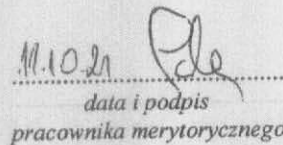 11.10.21
data i podpis
pracownika merytorycznego